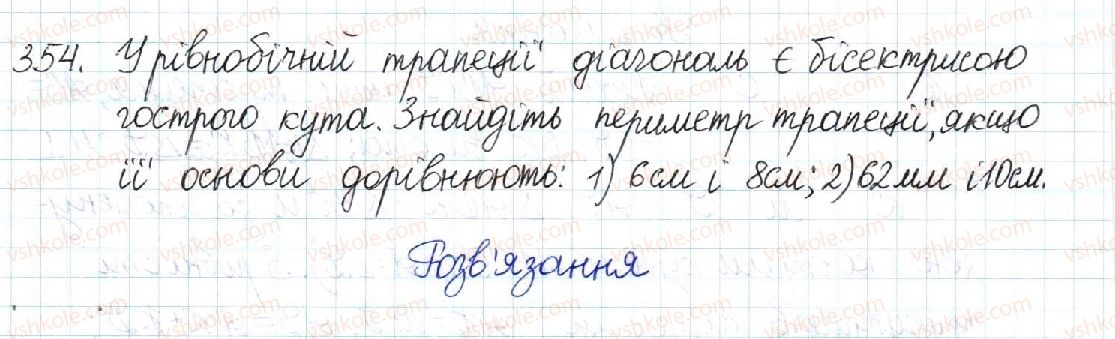 354. У рівнобічній трапеції діагональ є бісектрисою
гострого кута. Знайдіть периметр трапеції, якщо
її основи дорівнюють: 1) 6 см і 8 см; 2) 62 мм і 10 см.
Розв'язання